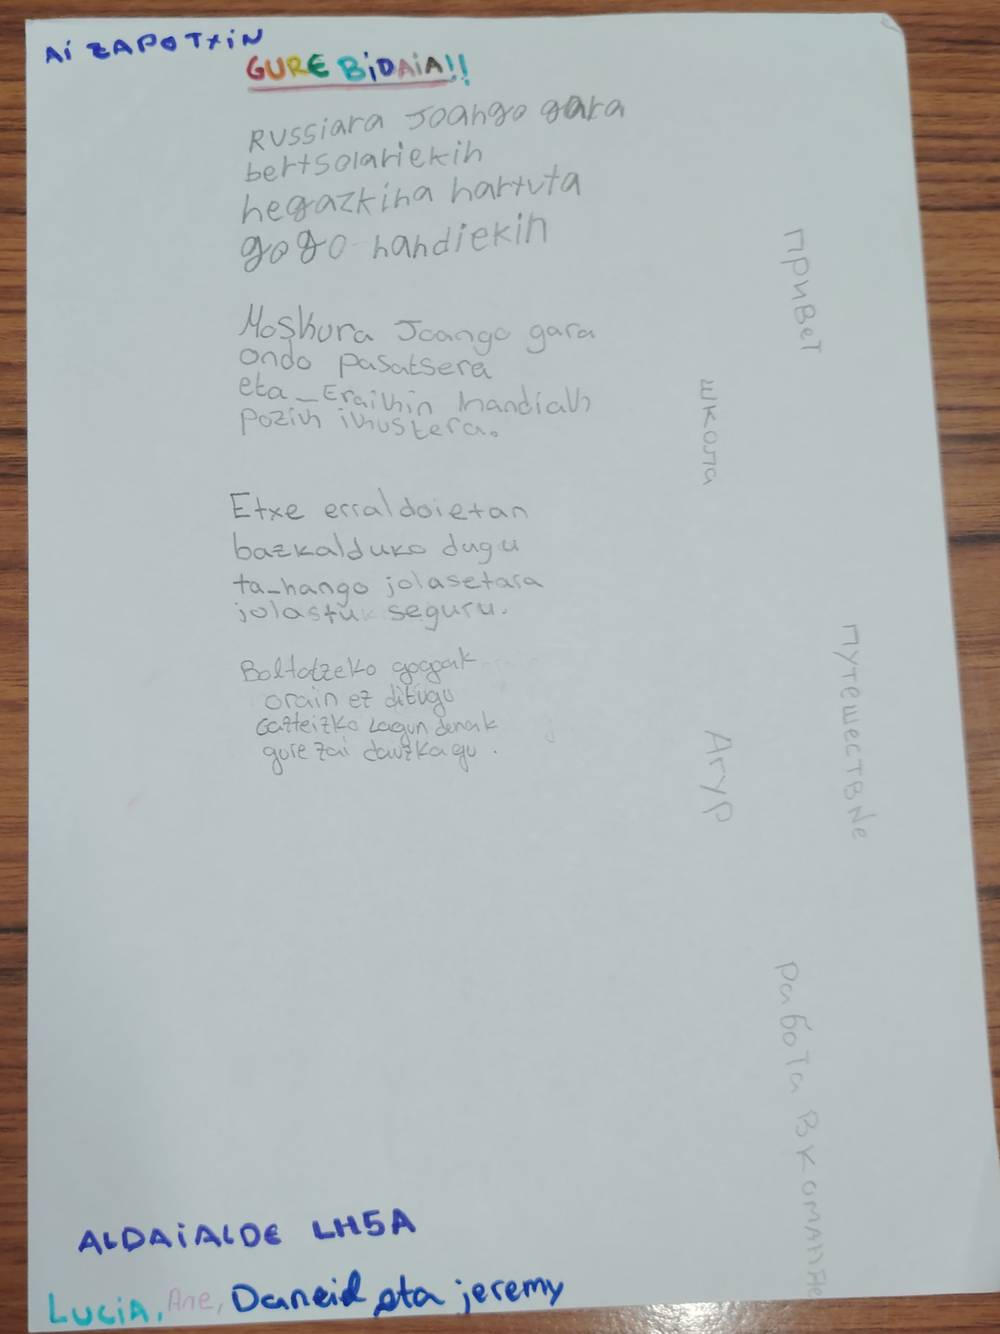 Ai ZAPOTXiN
GURE BiDAiA!!
RUSSiara Joango gara
bertsolariekin
hegazkina hartuta
gogo handiekin
Moskura Joango gara
ondo pasatsera
eta_Eraikin handiak
pozik ikustera.
Etxe erraldoietan
bazkalduko dugu
ta_hango jolasetara
jolastu seguru.
orain ez ditugu
Gazteizko Lagun denak
gure zai dauzkagu.
привет
школа
путешествие
Агур
работа в команде
ALDAiALDE LH5A
LUCiA, Ane, Daneid eta jeremy